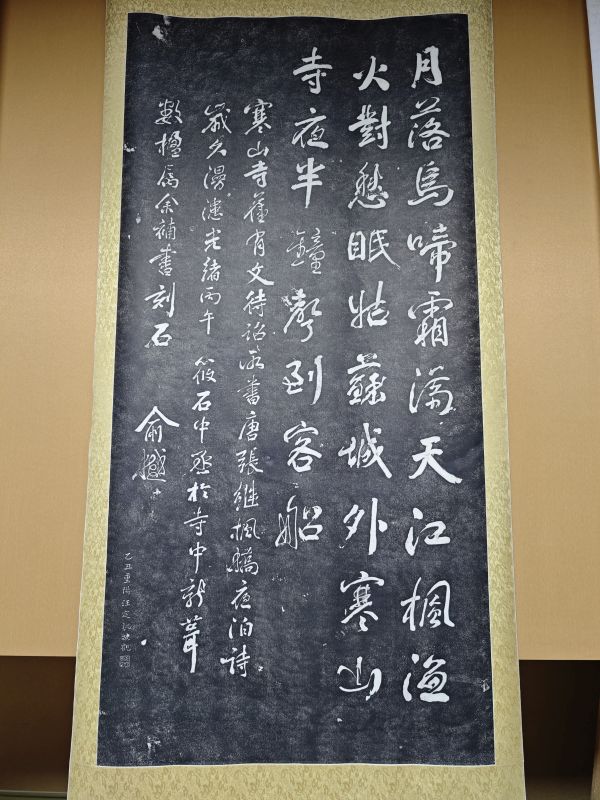 月落烏啼霜滿天江楓漁
火對愁眠姑蘇城外寒山
寺夜半鐘聲到客船
寒山寺舊有文待詔所書唐張繼楓橋夜泊詩
歲久漫漶光緒丙午筱石中丞於寺中新葺
數楹屬余補書刻石 俞樾
乙丑重陽